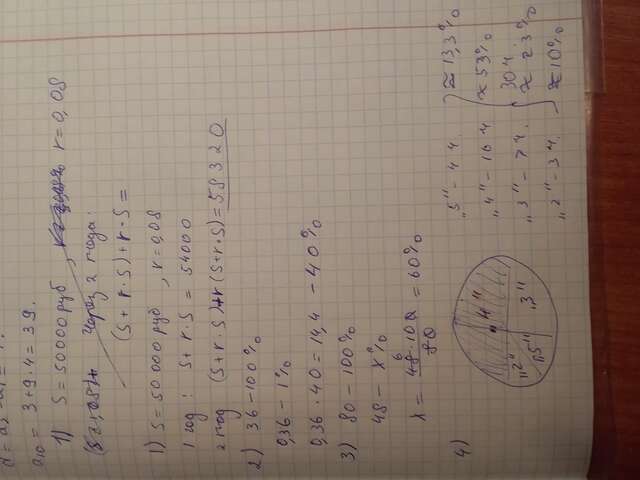 a₁₀ = 3 + 9 · 4 = 39.
1) S = 50000 руб, r = 0,08
через 2 года:
(S + r · S) + r · S =
1) S = 50000 руб, r = 0,08
1 год: S + r S = 54000
2 год (S + r · S) + r (S + r · S) = 58320
2) 36 – 100%
0,36 – 1%
0,36 · 40 = 14,4 – 40%
3) 80 – 100%
48 – X%
X = 48 · 100 / 80 = 60%
6
4)
"2"
"5"
"4"
"3"
"5" – 4 ч. ≈ 13,3%
"4" – 16 ч ≈ 53%
30 ч.
"3" – 7 ч. ≈ 23%
"2" – 3 ч. ≈ 10%